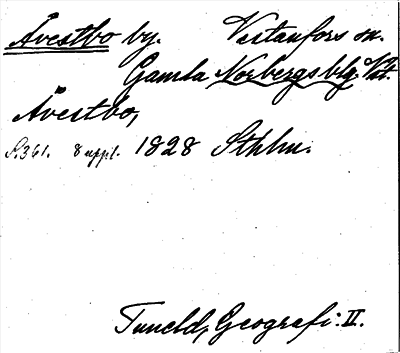 Åvestbo by. Västanfors sn.
Gamla Norbergs blg. Vstm.
Åvestbo,
S. 361. 8 uppl. 1828 Sthlm.
Tuneld, Geografi. II.